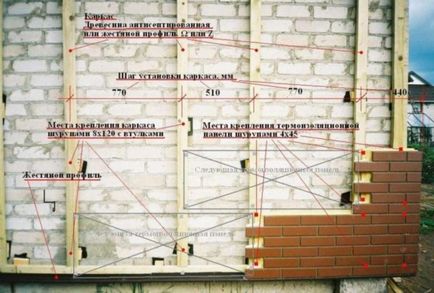 Каркас
Древесина антисептированная
или жестяной профиль Ω или Z
Шаг установки каркаса, мм
770
510
770
440
Места крепления каркаса
шурупами 8х120 с втулками
Места крепления термоизоляционной
панели шурупами 4х45
Следующая термоизоляционная панель
Жестяной профиль
Следующая термоизоляционная панель